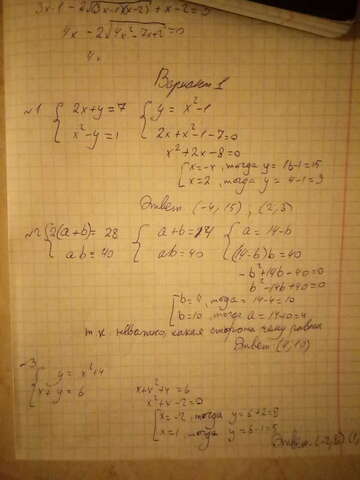 3x-1-2√(3x-1)(x-2) + x-2=0
4x - 2√4x²-7x+2 = 0
4x
Вариант 1
№1 { 2x+y=7 { y = x²-1
x²-y=1 2x+x²-1-7=0
x²+2x-8=0
[ x=-4, тогда y=16-1=15
x=2, тогда y=4-1=3
Ответ (-4,15), (2,3)
№2 { 2(a+b)=28 { a+b=14 { a=14-b
ab=40 ab=40 (14-b)b=40
-b²+14b-40=0
b²-14b+40=0
[ b=4, тогда =14-4=10
b=10, тогда a=14-10=4
т к неважно, какая сторона чему равна
Ответ (4,10)
3 { y = x²+4
x+y=6 x+x²+4=6
x²+x-2=0
[ x=-2, тогда y=6+2=8
x=1, тогда y=6-1=5
Ответ (-2,8) (1,